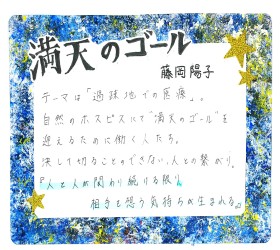 満天のゴール
藤岡陽子
テーマは「過疎地での医療」。
自然のホスピスにて"満天のゴール"を
迎えるために働く人たち。
決して切ることのできない、人との繋がり。
『人と人が関わり続ける限り、
相手を想う気持ちが生まれる。』